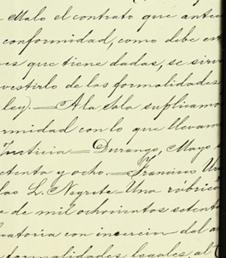 Malo el contrato que antec
conformidad, como debe est
es que tiene dadas, se sirv
vestirlo de las formalidades
ley.—A la Sala suplicamo
rmidad con lo que llevam
Justicia—Durango, Mayo
etenta y ocho.—Francisco
L. Negrete—Una rúbrica
e de mil ochocientos setent
catoria con insercion del a
formalidades legales, al